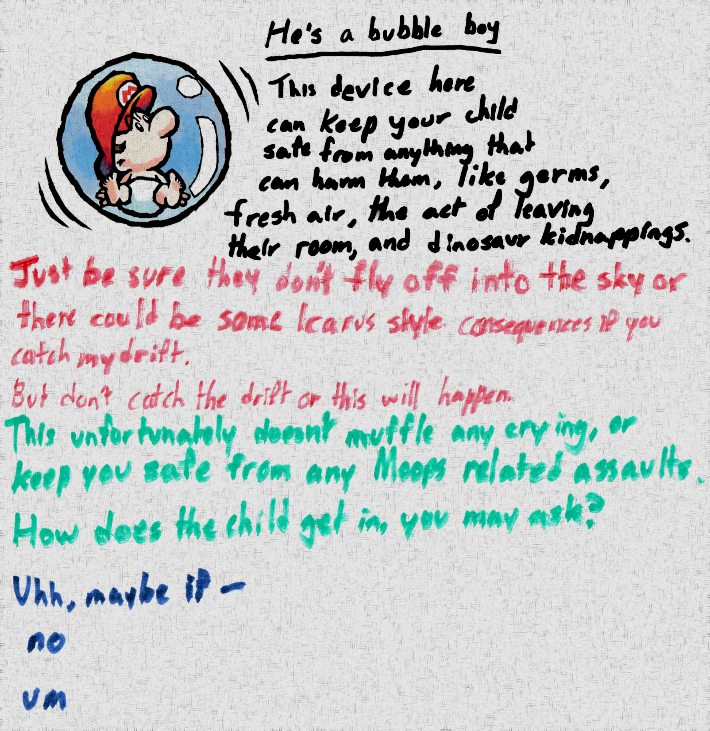 He's a bubble boy
This device here
can keep your child
safe from anything that
can harm them, like germs,
fresh air, the act of leaving
their room, and dinosaur kidnappings.
Just be sure they don't fly off into the sky or
there could be some Icarus style consequences if you
catch my drift.
But don't catch the drift or this will happen.
This unfortunately doesn't muffle any crying, or
keep you safe from any Moops related assaults.
How does the child get in, you may ask?
Uhh, maybe if -
no
um